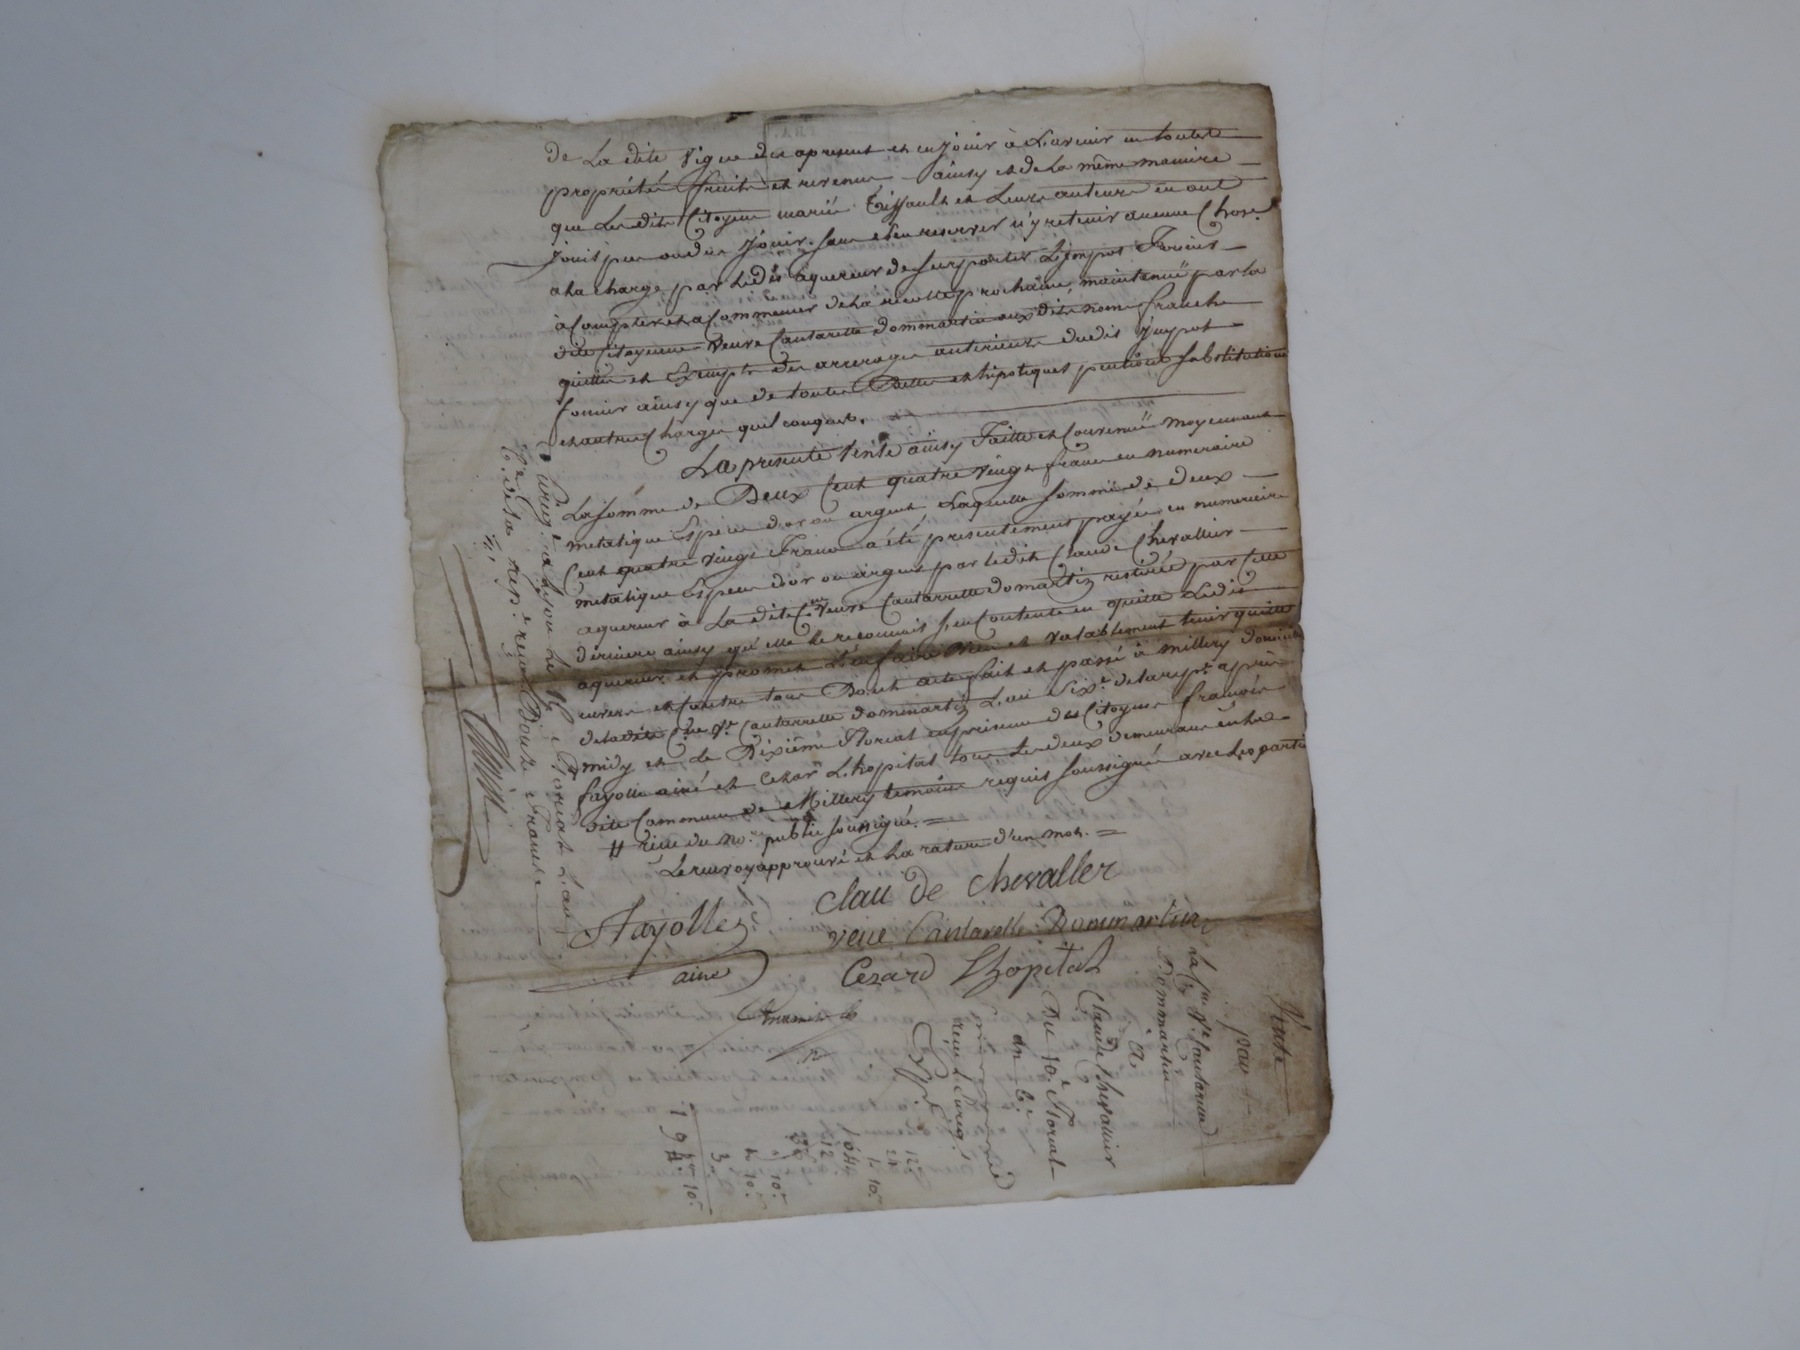 de La dite Vigne des apresent et en jouir à L'avenir en toutte
propriétée fruits et revenus ainsy et de la même maniere
que Les dits Citoyens mariés Tissault et Leurs auteurs en ont
jouis pue ou du jouir. sans s'en reserver n'y retenir aucune Chose
a la charge par Ledit aquereur de suporter L'jmpot Foncier
à Compter et a Commencer de La recolte prochaine, maintenuë par la
dite Citoyenne Veuve Cantarelle dommartin aux dits noms franche
quitte et Exempte des arrerages anterieurs dudit jmpot
foncier ainsy que de toutes Dettes et hipoteques pentions substitutions
et autres Charges quelconques.
La presente Vente ainsy Faitte et Convenuë moyennant
La somme de Deux Cent quatre Vingt francs en numeraire
metalique Espece d'or ou argent Laquelle somme de deux
Cent quatre Vingt Francs a été presentement payée en numeraire
metalique Espece d'or ou argent par ledit Claude Chevallier
aquereur à La dite Cne Veuve Cantarrelle domartin par Cette
derniere ainsy qu'elle le reconnoit s'en Contente en quitte Ledit
aquereur et promet L'en faire tenir et valablement tenir quitte
envers et Contre tous Dont acte fait et passé à millery domicille
de la dite Cne Ve Cantarrelle dommartin L'an Sixe de la repe après
midy et le Dixième Floreal en presence des Citoyens francois
fayolle ainé et Cezar Lhopital tous Les deux demeurant en La
dite Commune de Millery temoins requis soussignés avec Les parties
# du no. public soussigné.
Le renvoy approuvé et La rature d'un mot.
Claude Chevaller
Fayolle
veuve Cantarelle Dommartin
ainé
Cezard Lhopital
Enreg. a Lyon Le Floreal L'an
6e de la rep. recu Douze Francs
Vente
par
La Cne Ve Cantarelle
Dommartin
à
Claude Chevallier
Du 10e Floreal
an 6e